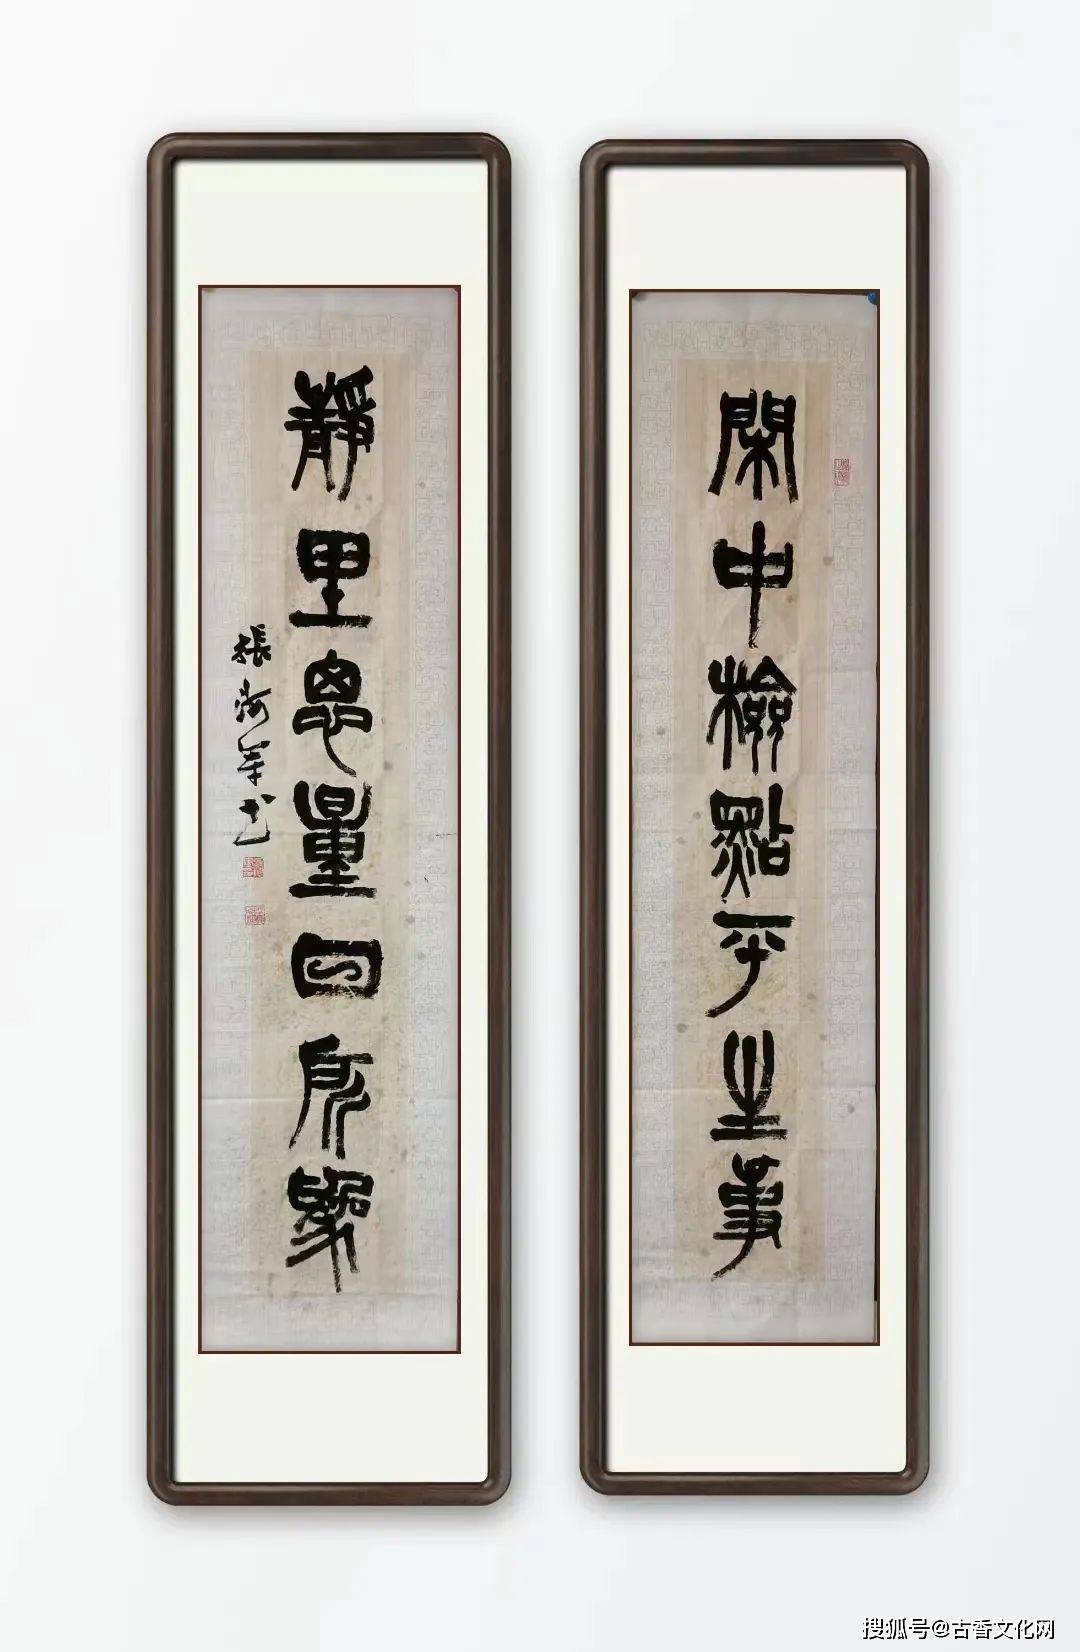 閑中檢點平生事
靜里思量日所為
張
軍书
搜狐号@古香文化网